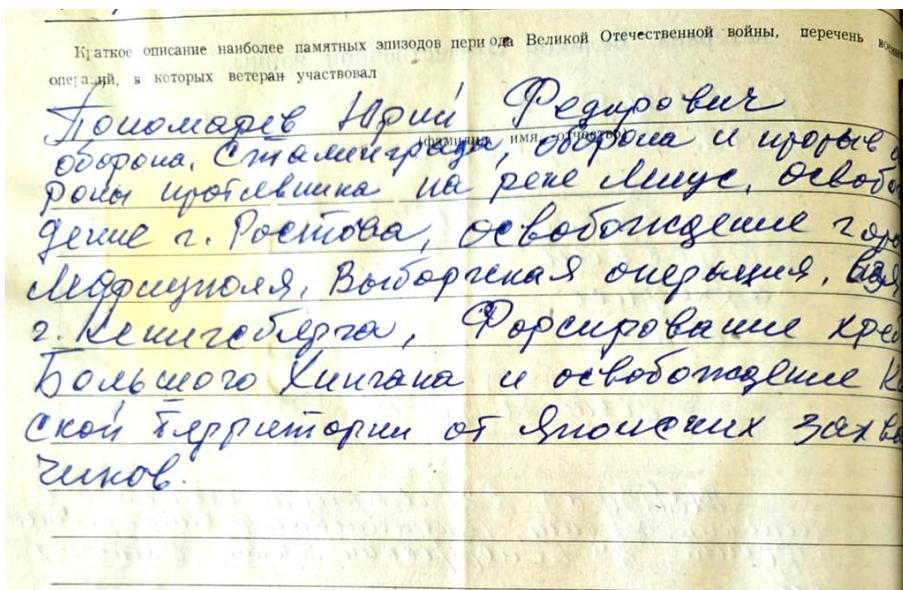 Краткое описание наиболее памятных эпизодов периода Великой Отечественной войны, перечень
операций, в которых ветеран участвовал
Пономарев Юрий Федорович
(фамилия, имя, отчество)
оборона Сталинграда, оборона и прорыв
роны противника на реке Миус, освобо
дение г. Ростова, освобождение горо
Мариуполя, Выборгская операция,
г. Кенигсберга, Форсирование хреб
Большого Хингана и освобождение
ской территории от Японских захва
чиков.